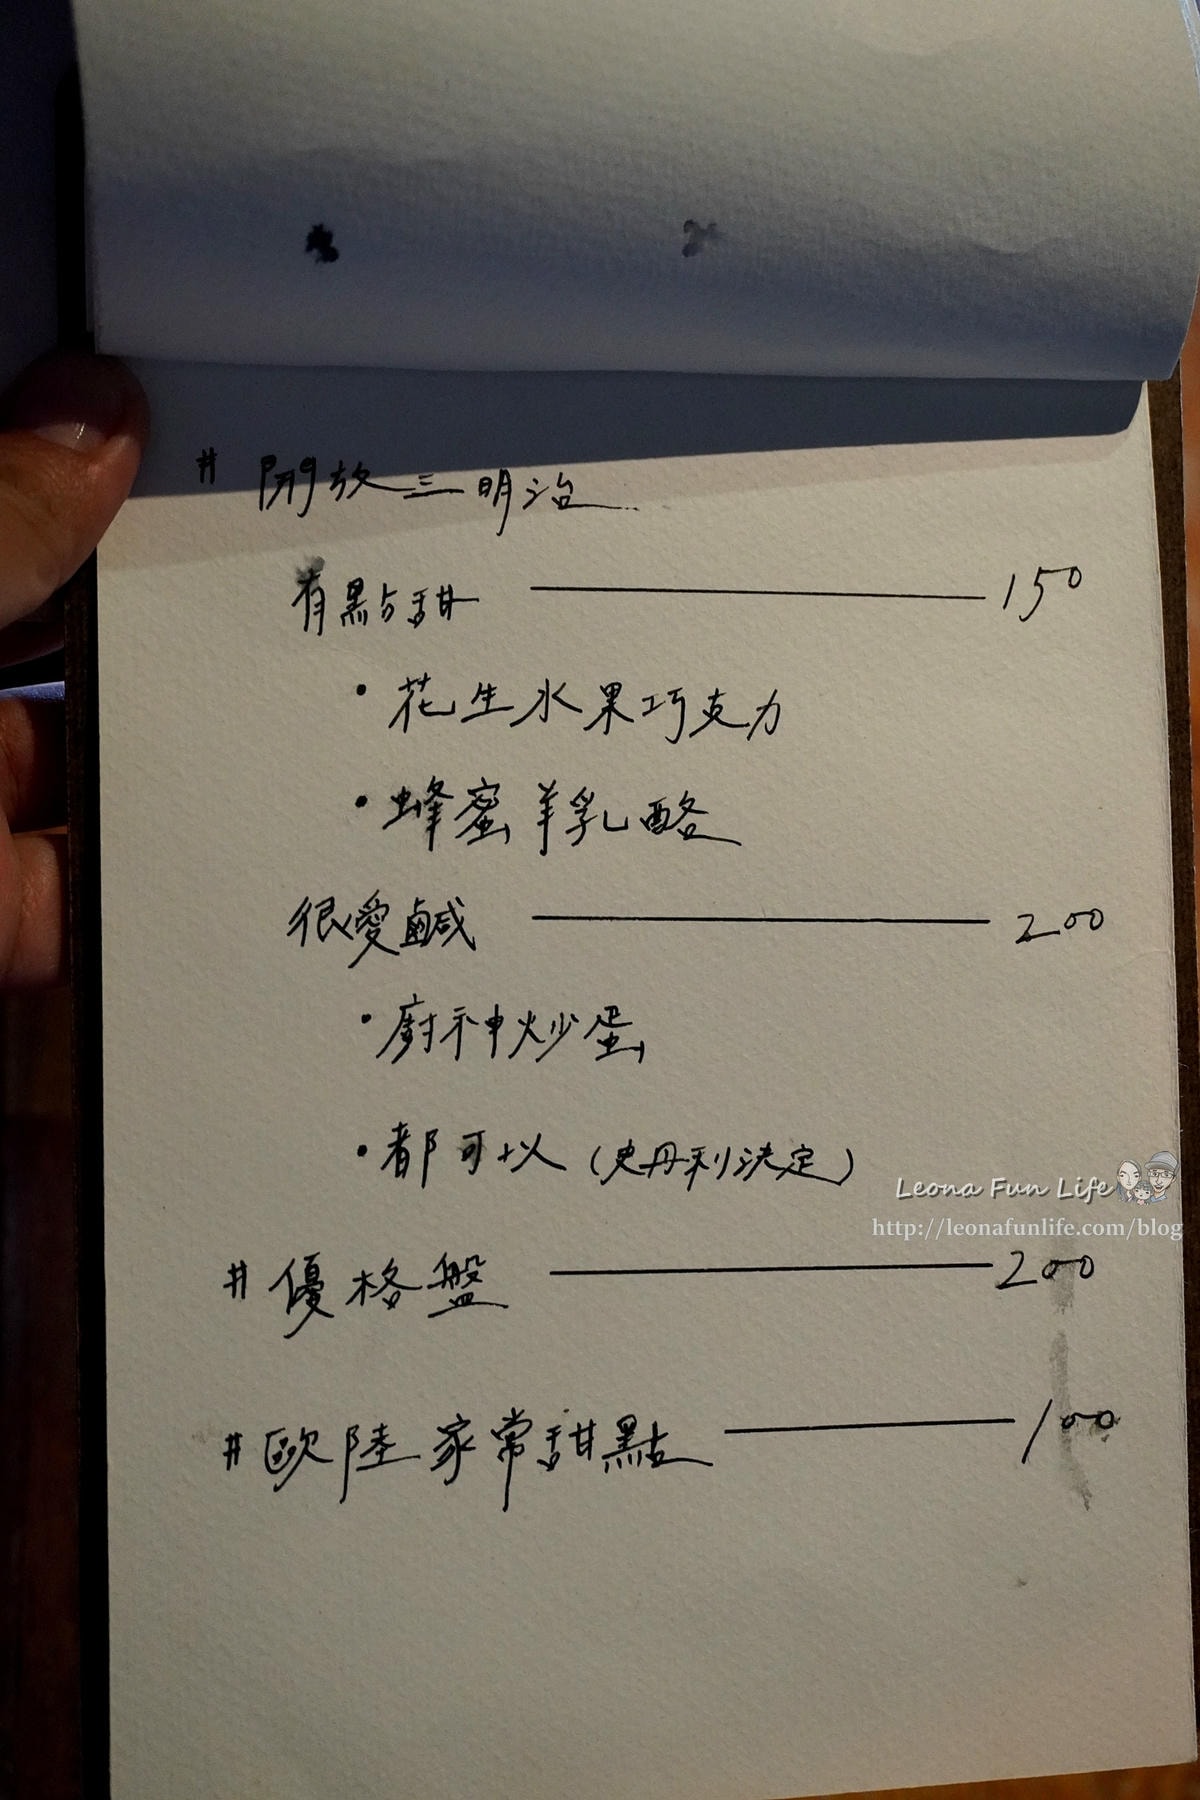 # 開放三明治
有點甜 —— 150
• 花生水果巧克力
• 蜂蜜羊乳酪
很愛鹹 —— 200
• 廚神炒蛋
• 都可以 (史丹利決定)
Leona Fun Life
http://leonafunlife.com/blog
# 優格盤 —— 200
# 歐陸家常甜點 —— 100